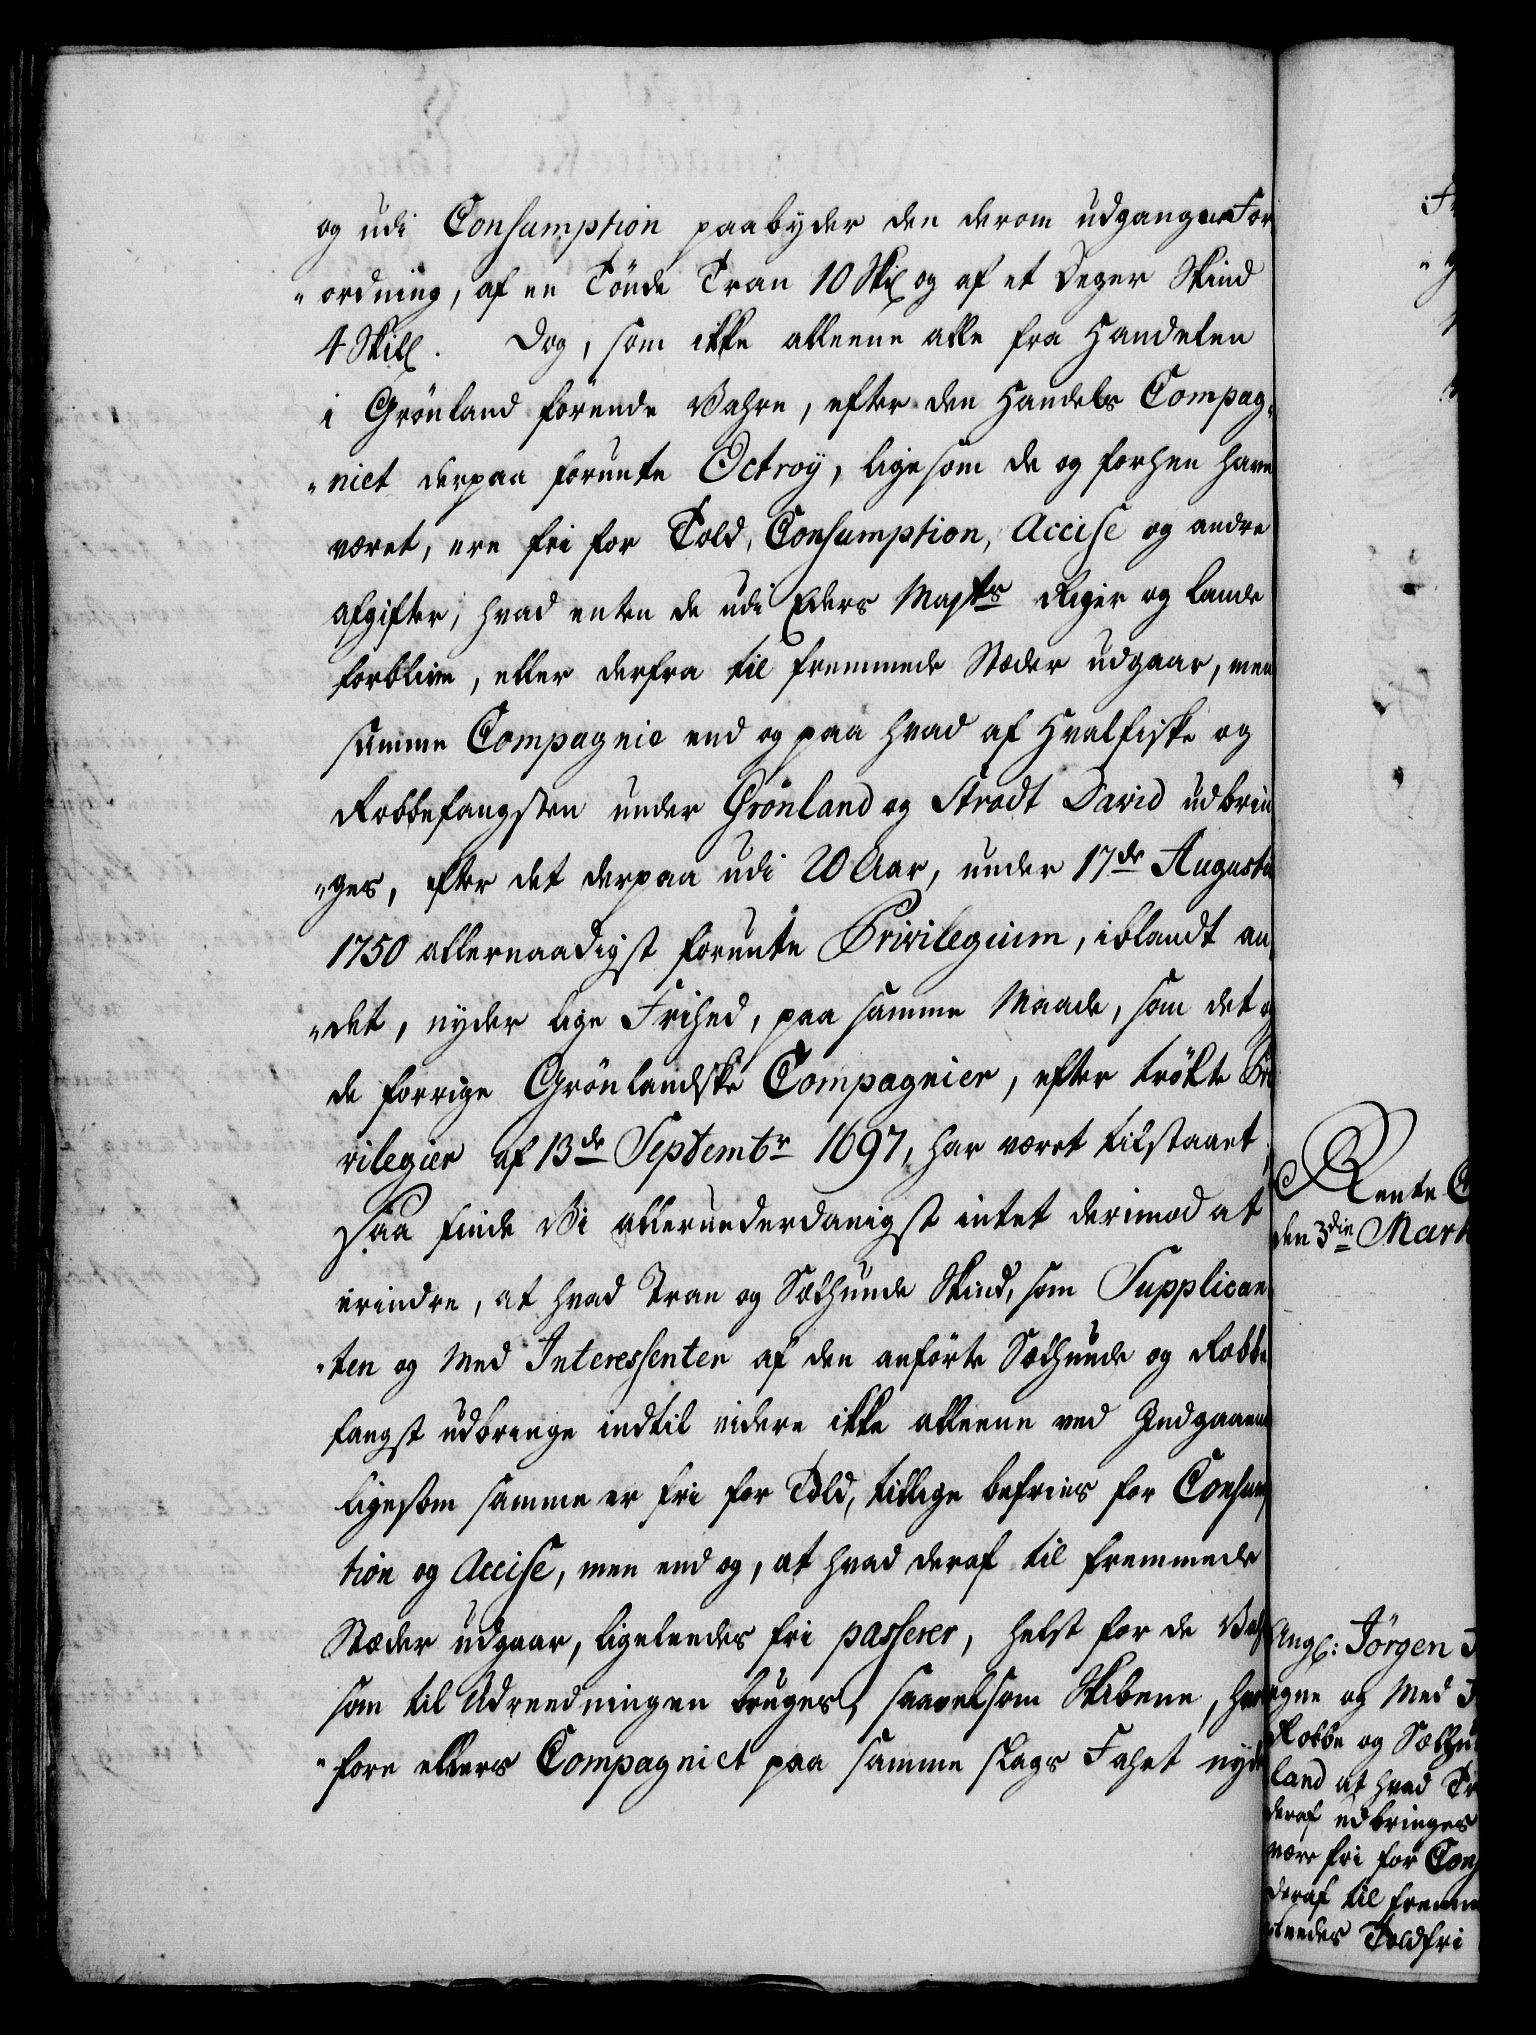 og udi Consumption paabyder den derom udgangne For
"ordning, af en Tönde Tran 10 Skil og af et Deger Skind
4 Skill. Dog, som ikke alleene alle fra Handelen
i Grönland förende Vahre, efter den Handels Compag-
"niet derpaa forunte Octroÿ, ligesom de og forhen have
været, ere fri for Told, Consumption, Accise og andre
afgifter, hvad enten de udi Eders Majts Riger og Lande
forblive, eller derfra til fremmede Stæder udgaar, men
samme Compagnie end og paa hvad af Hvalfiske og
Robbefangsten under Grönland og Stradt David udbrin
"ges, efter det derpaa udi 20 Aar, under 17de Augusti
1750 allernaadigst forunte Privilegium, iblandt an
"det, nyder lige Frihed, paa samme Maade, som det og
de forrige Grönlandske Compagnier, efter trökte Pri
vilegier af 13de Septembr 1697, har været tilstaaet,
Saa finde Vi allerunderdanigst intet derimod at
erindre, at hvad Tran og Sælhunde Skind, som Supplican
"ten og Med Interessenter af den anförte Sælhunde og Robbe
fangst udbringe indtil videre ikke alleene ved Indgaaende
ligesom samme er fri for Told, tillige befries for Consum
tion og Accise, men end og, at hvad deraf til fremmede
Stæder udgaar, ligeleedes fri passerer, helst for de Vah
som til Udreedningen bruges, saavelsom Skibene, hvor
"fore ellers Compagniet paa samme slags Fahrt nyde
Rente C
den 3die Mart
Ang: Jörgen
egne og Med I
Robbe og Sælhu
land at hvad Tr
deraf udbringes
være fri for Cons
deraf til fremm
leedes Toldfri